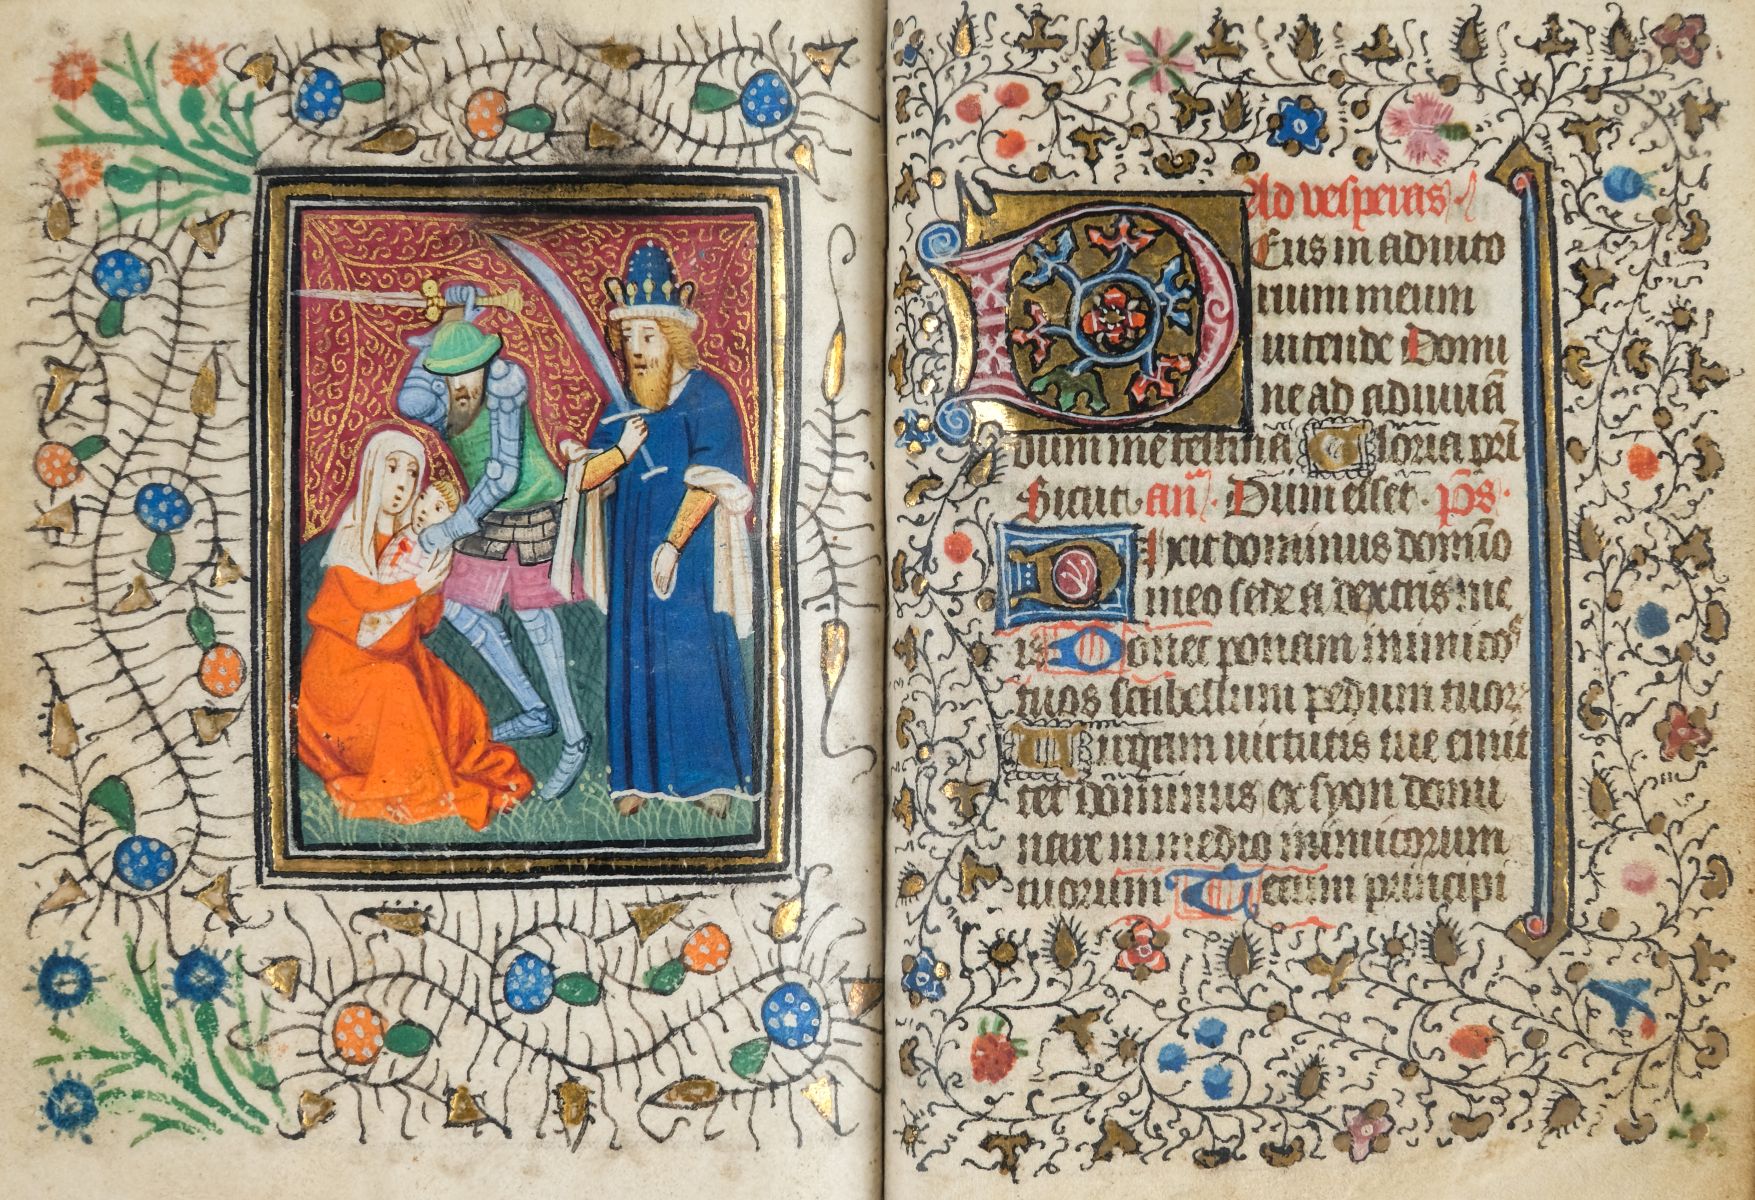 Ad vesperas.
Eus in adiuto
rium meum
intende Domi
ne ad adiuuā
dum me festina Gloria pr̄i
Sicut. an̄. Dum esset. p̄s.
Dixit dominus domīo
meo sede a dextris me
is Donec ponam inimicos
tuos scabellum pedum tuor
Uirgam uirtutis tue emit
tet dominus ex syon domi
nare in medio inimicorum
tuorum Tecum principi